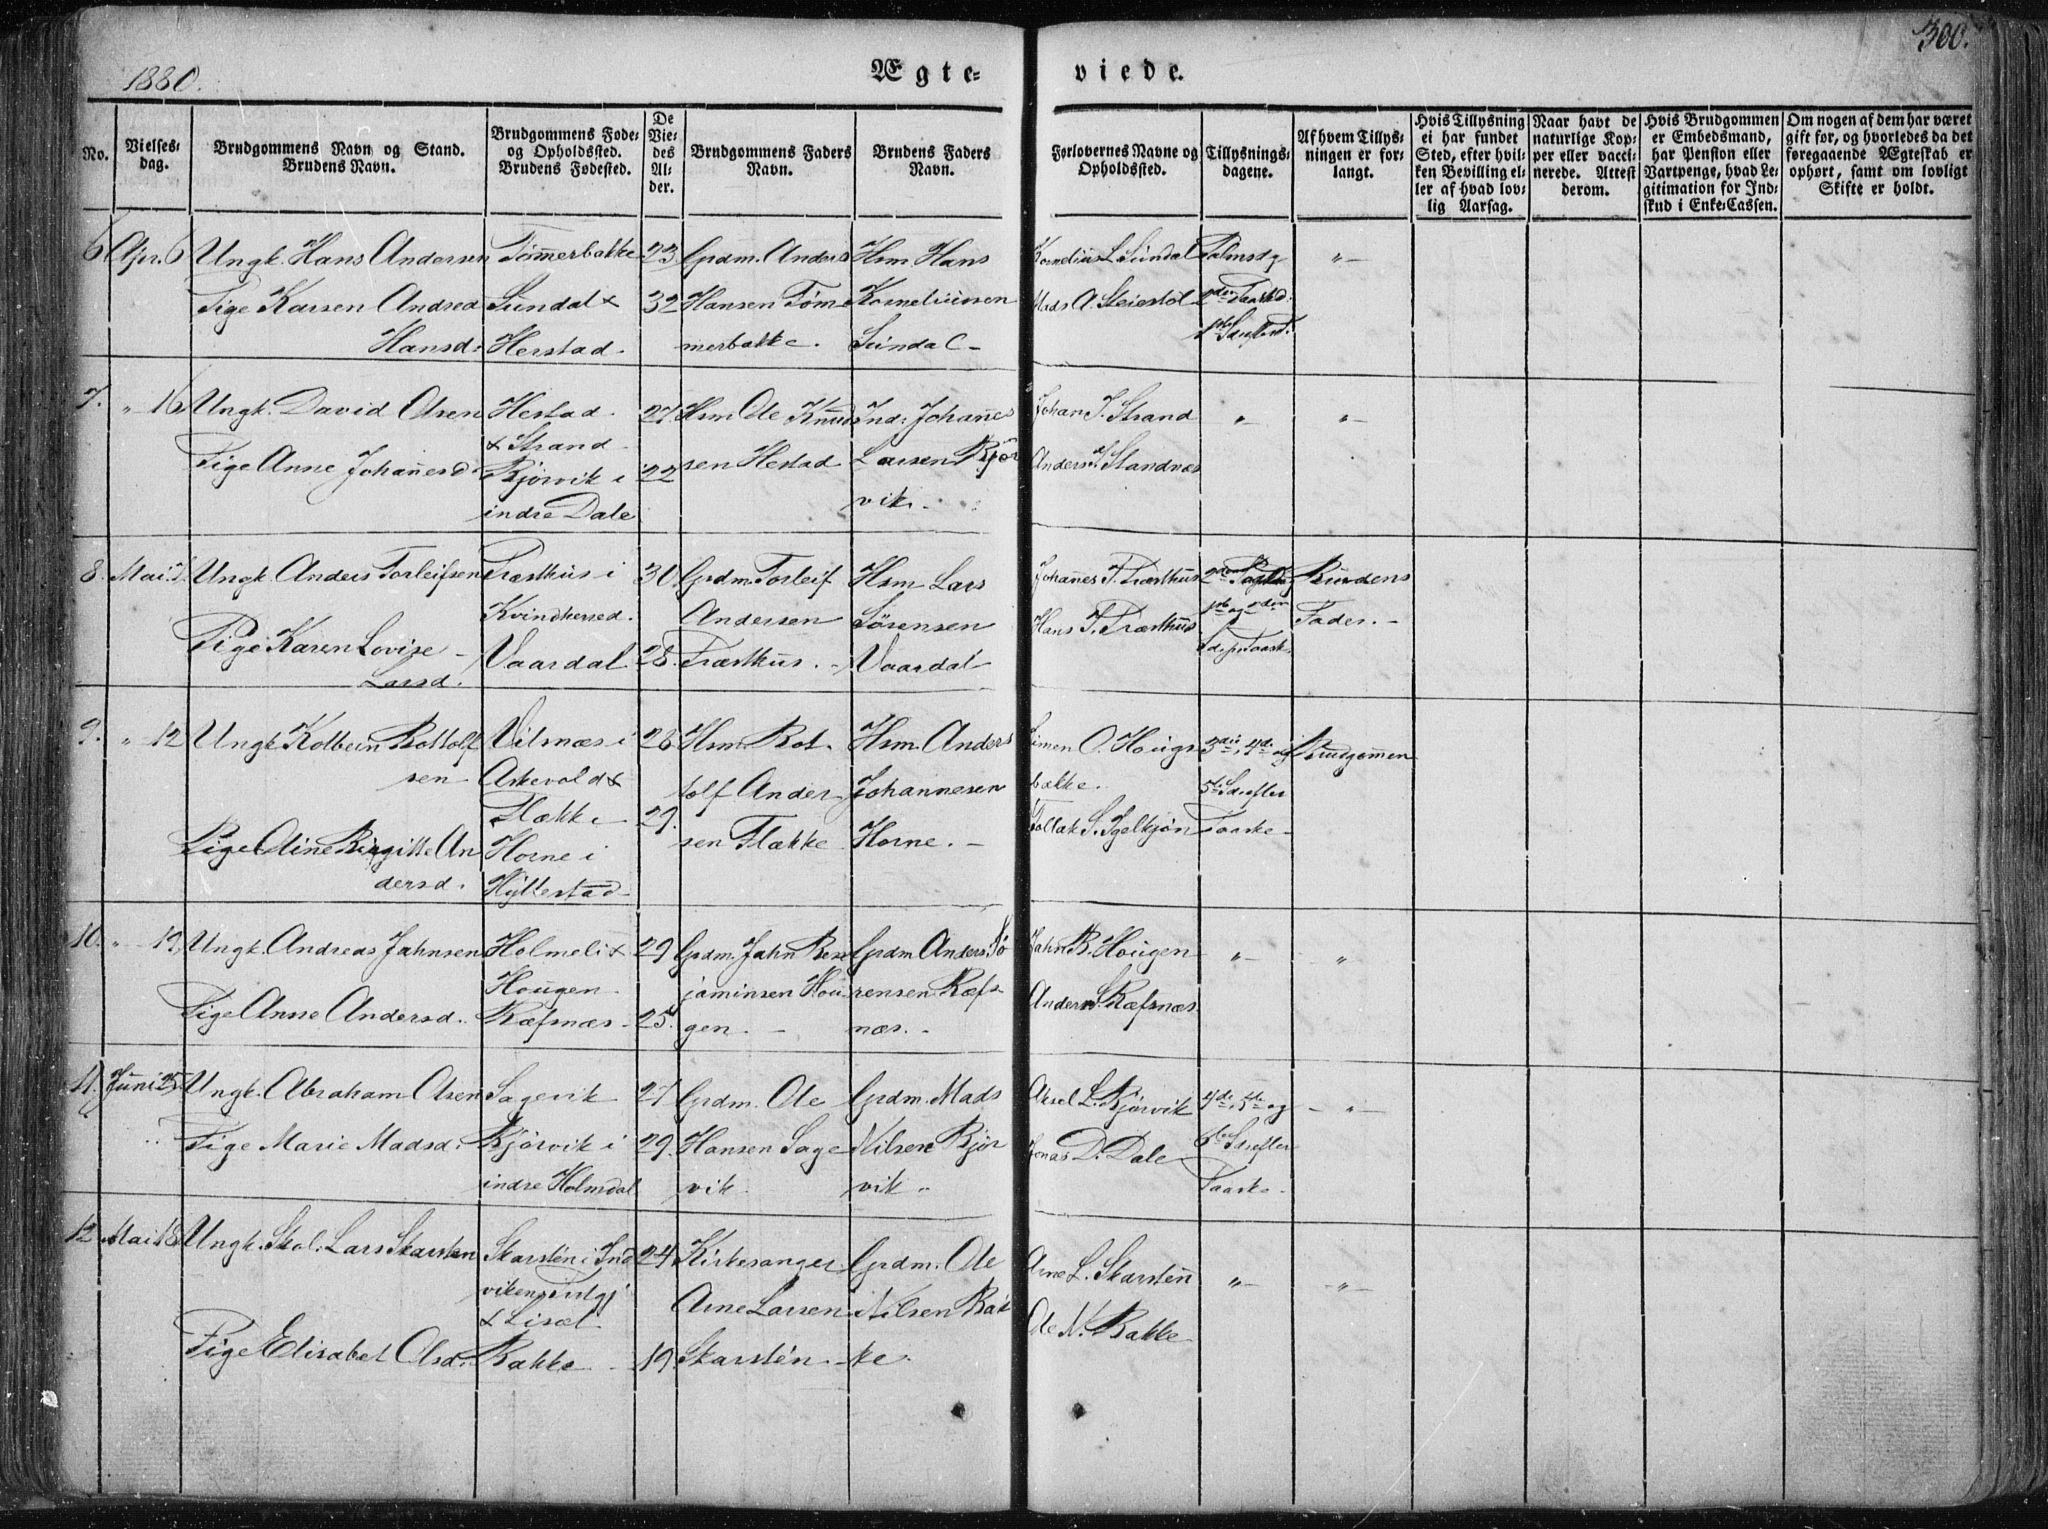 300.
1880.
Ægte-
viede.
No.
Vielses-
dag.
Brudgommens Navn og Stand.
Brudens Navn.
Brudgommens Føde-
og Opholdssted.
Brudens Fødested.
De
Vie-
des
Al-
der.
Brudgommens Faders
Navn.
Brudens Faders
Navn.
Forlovernes Navne og
Opholdssted.
Tillysnings-
dagene.
Af hvem Tillys-
ningen er for-
langt.
Hvis Tillysning
ei har fundet
Sted, efter hvil-
ken Bevilling el-
ler af hvad lov-
lig Aarsag.
Naar havt de
naturlige Kop-
per eller vacci-
nerede. Attest
derom.
Hvis Brudgommen
er Embedsmand,
har Pension eller
Vartpenge, hvad Le-
gitimation for Ind-
skud i Enke-Cassen.
Om nogen af dem har været
gift før, og hvorledes da det
foregaaende Ægteskab er
ophørt, samt om lovligt
Skifte er holdt.
6 Apr. 6
Ungk. Hans Andersen
Pige Karen Andrea
Hansd.
Tømmerbakke
Sundal &
Herstad.
23
32
Grdm. Anders
Hansen Tøm
merbakke.
Hsm. Hans
Korneliussen
Sundal -
Kornelius L Sundal
Mads A. Steiestøl
Palmsdg
2den Paaskd.
"-
7. " 16
Ungk. David Olsen
Pige Anne Johannesd
Hestad
& Strand
Bjørvik i
indre Dale
27
22
Hsm Ole Knud
sen Hestad
Ind: Johannes
Larsen Bjør
vik.
Johan J. Strand
Anders J. Standnæs
"
"-
8. Mai 7.
Ungk Anders Torleifsen
Pige Karen Lovise
Larsd.
Træsthus i
Kvindherred.
Vaardal
30
28.
Grdm. Torleif
Andersen
Træsthus. -
Hsm Lars
Sørensen
Vaardal
Johannes T. Træsthus
Hans T. Træsthus
Brudens
Fader. -
9. " 12
Ungk Kolbein Bottolf
sen
Pige Oline Birgitte An
dersd.
Vilnæs i
Askevold &
Flække
Horne i
Hyllestad
28
29.
Hsm. Bot.
tolf Ander
sen Flække
Hsm. Anders
Johannesen
Horne. -
Simen O. Hougs
bakke.
Tollak S. Igelkjøn
3die, 4de og
5te Sd efter
Paaske -
Brudgommen
10. " 19.
Ungk. Andreas Jahnsen
Pige Anne Andersd.
Holmeli &
Hougen
Ræfsnæs -
29
25.
Grdm. Jahn Ben
jaminsen Hou
gen. -
Grdm Anders Sø
rensen Ræfs
næs. -
Jahn B. Hougen
Anders S. Ræfsnæs.
"-
"
11. Juni 25
Ungk. Abraham Olsen
Pige Marie Madsd.
Sagevik
Bjørvik i
indre Holmdal
27
29.
Grdm. Ole
Hansen Sage
vik.
Grdm. Mads
Nilsen Bjør
vik "
Aksel L. Bjørvik
Jonas D. Dale
4de, 5te og
6te Sd efter
Paaske.
- "-
12 Mai 18.
Ungk. Skol. Lars Skarsten
Pige Elisabet Olsd.
Skarsten i Ind
vikens Prstgj
& Lisæt
Bakke
24
19.
Kirkesanger
Arne Larsen
Skarstén. -
Grdm. Ole
Nilsen Bak
ke.
Arne L. Skarsten
Ole N. Bakke
"-
- "-